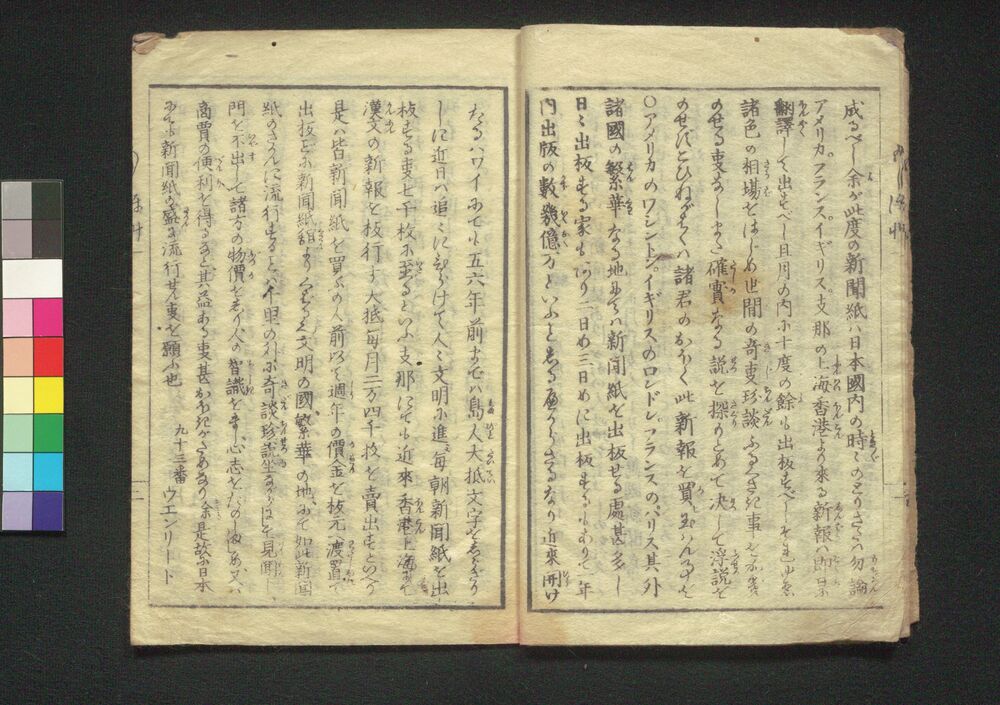 成るべし余が此度の新聞紙ハ日本國内の時々のとりさたハ勿論
アメリカフランスイギリス支那の上海香港より来る新報ハ即日に
翻譯して出すべし且月の内に十度の餘も出板すべし
諸色の相場をはじめ世間の奇事珍談ふるき記事
のせる事なしまた確實なる説を探りもとめて決して浮説を
のせたこひねがくハ諸君のかく此新報を買玉はん
〇アメリカのワシントンイギリスのロンドンフランスのパリス其外
諸國の繁華なる地にてハ新聞紙を出板せる處甚多し
日々出板する家もあり二日め三日めに出板するもありて年
内出版の数幾億万といふをしるべからざるなり近來開け
たるハワイにても五六年前までハ島人大抵文字をしらざり
しに近日ハ追々にひらけて人々文明に進ミ毎朝新聞紙を出
板する事七千枚に至るといふ支那にても近來香港上海にて
漢文の新報を板行す大抵毎月二万四千枚を賣出すといへり
是ハ皆新聞紙を買ふの人前以て週年の價金を板元へ渡置て
出板ごとに新聞紙館よりくばる文明の國繁華の地にて如此新聞
紙のさかんに流行するときハ千里の外に奇談珍説坐ながらにそを見聞
門を不出して諸方の物價をしり人の智識をまし心志をたのしめ又ハ
商賈の便利を得るなど其益ある事甚かぞへがたきあり余是故に日本
にても新聞紙の盛に流行せん事を願ふ也
九十三番 ウエンリート